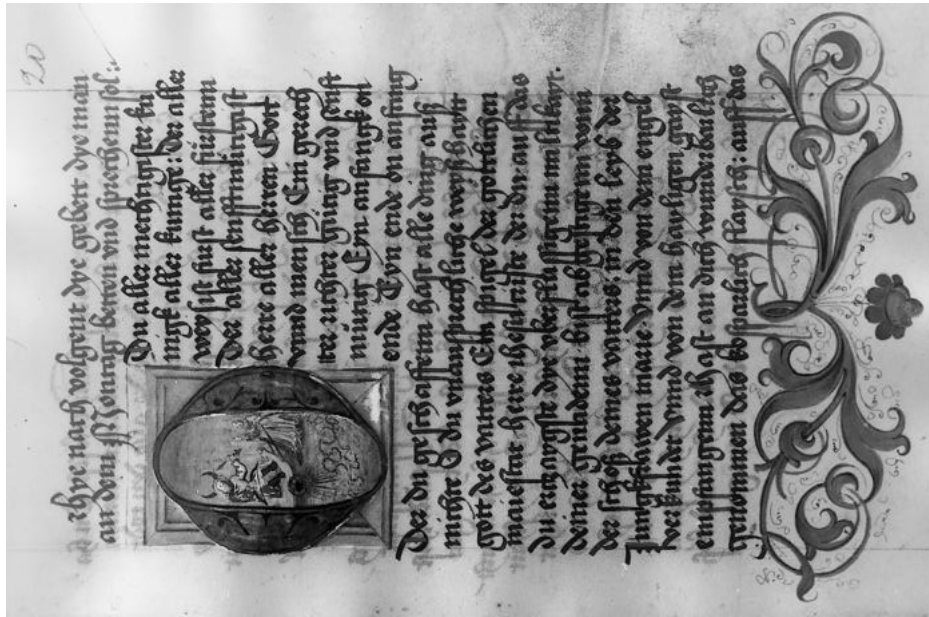 20
Hye nach volgent dye gebett dye man
an dem Montag betten vnd sprechenn sol:
Du aller mechtigster kü
nigk aller künige: der aller
weysist fürst aller fürstenn
Der aller senfftmütigist
herre aller herren Gott
vnnd mensch Ein gerech
ter richter gütig vnd senft
mütig Eyn anfangk on
ende Eyn ende on anfang
Der du geschaffenn hast alle ding auß
nichte O du vnaussprechliche weyßhaytt
gott des vatters Ein spigel der gotlichen
maiestat herre ihesu criste der du auff das
du dye vberflüssigenn miltikayt.
deiner genaden: bist abgestigenn vonn
der schoß deines vatters in den leyb der
Jungkfrawen marie: Vnnd von dem engel
verkündet vnnd von den hayligen gaist
empfangenn Hast an dich wunderbarlich
genommen das kosparlich flaysch: auff das